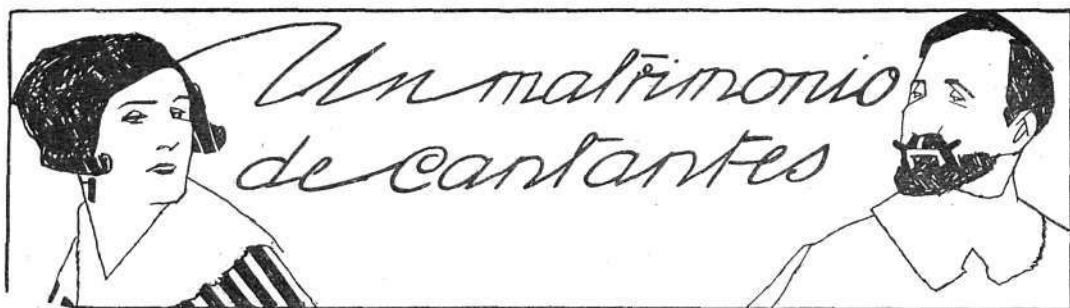 Un matrimonio
de cantantes